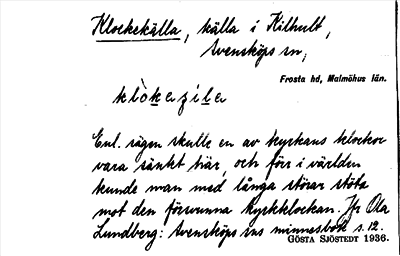 Klockekälla, källa i Kilhult,
Svensköps sn,
Frosta hd, Malmöhus län.
klòkezile
Enl. sägen skulle en av kyrkans klockor
vara sänkt här, och förr i världen
kunde man med långa störar stöta
mot den försvunna kyrkklockan. Jfr Ola
Lundberg: Svensköps sns minnesbok s. 12.
GÖSTA SJÖSTEDT 1936.